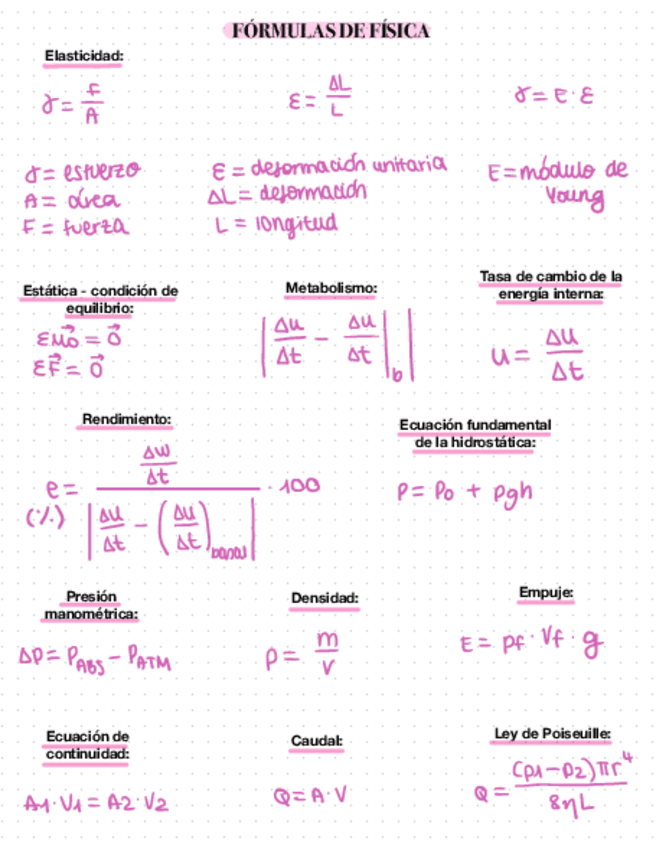 FÓRMULAS DE FÍSICA
Elasticidad:
γ = F/A
ε = ΔL/L
γ = E · ε
γ = esfuerzo
A = área
F = fuerza
ε = deformación unitaria
ΔL = deformación
L = longitud
E = módulo de
Young
Estática - condición de
equilibrio:
ΣM⃗o = 0⃗
ΣF⃗ = 0⃗
Metabolismo:
|Δu/Δt - Δu/Δt|b|
Tasa de cambio de la
energía interna:
u = Δu/Δt
Rendimiento:
e = (Δw/Δt) / |Δu/Δt - (Δu/Δt)basal| · 100
(%)
Ecuación fundamental
de la hidrostática:
P = Po + ρgh
Presión
manométrica:
ΔP = PABS - PATM
Densidad:
ρ = m/v
Empuje:
E = ρf · Vf · g
Ecuación de
continuidad:
A1 · V1 = A2 · V2
Caudal:
Q = A · V
Ley de Poiseuille:
Q = (p1 - p2)πr⁴/8ηL